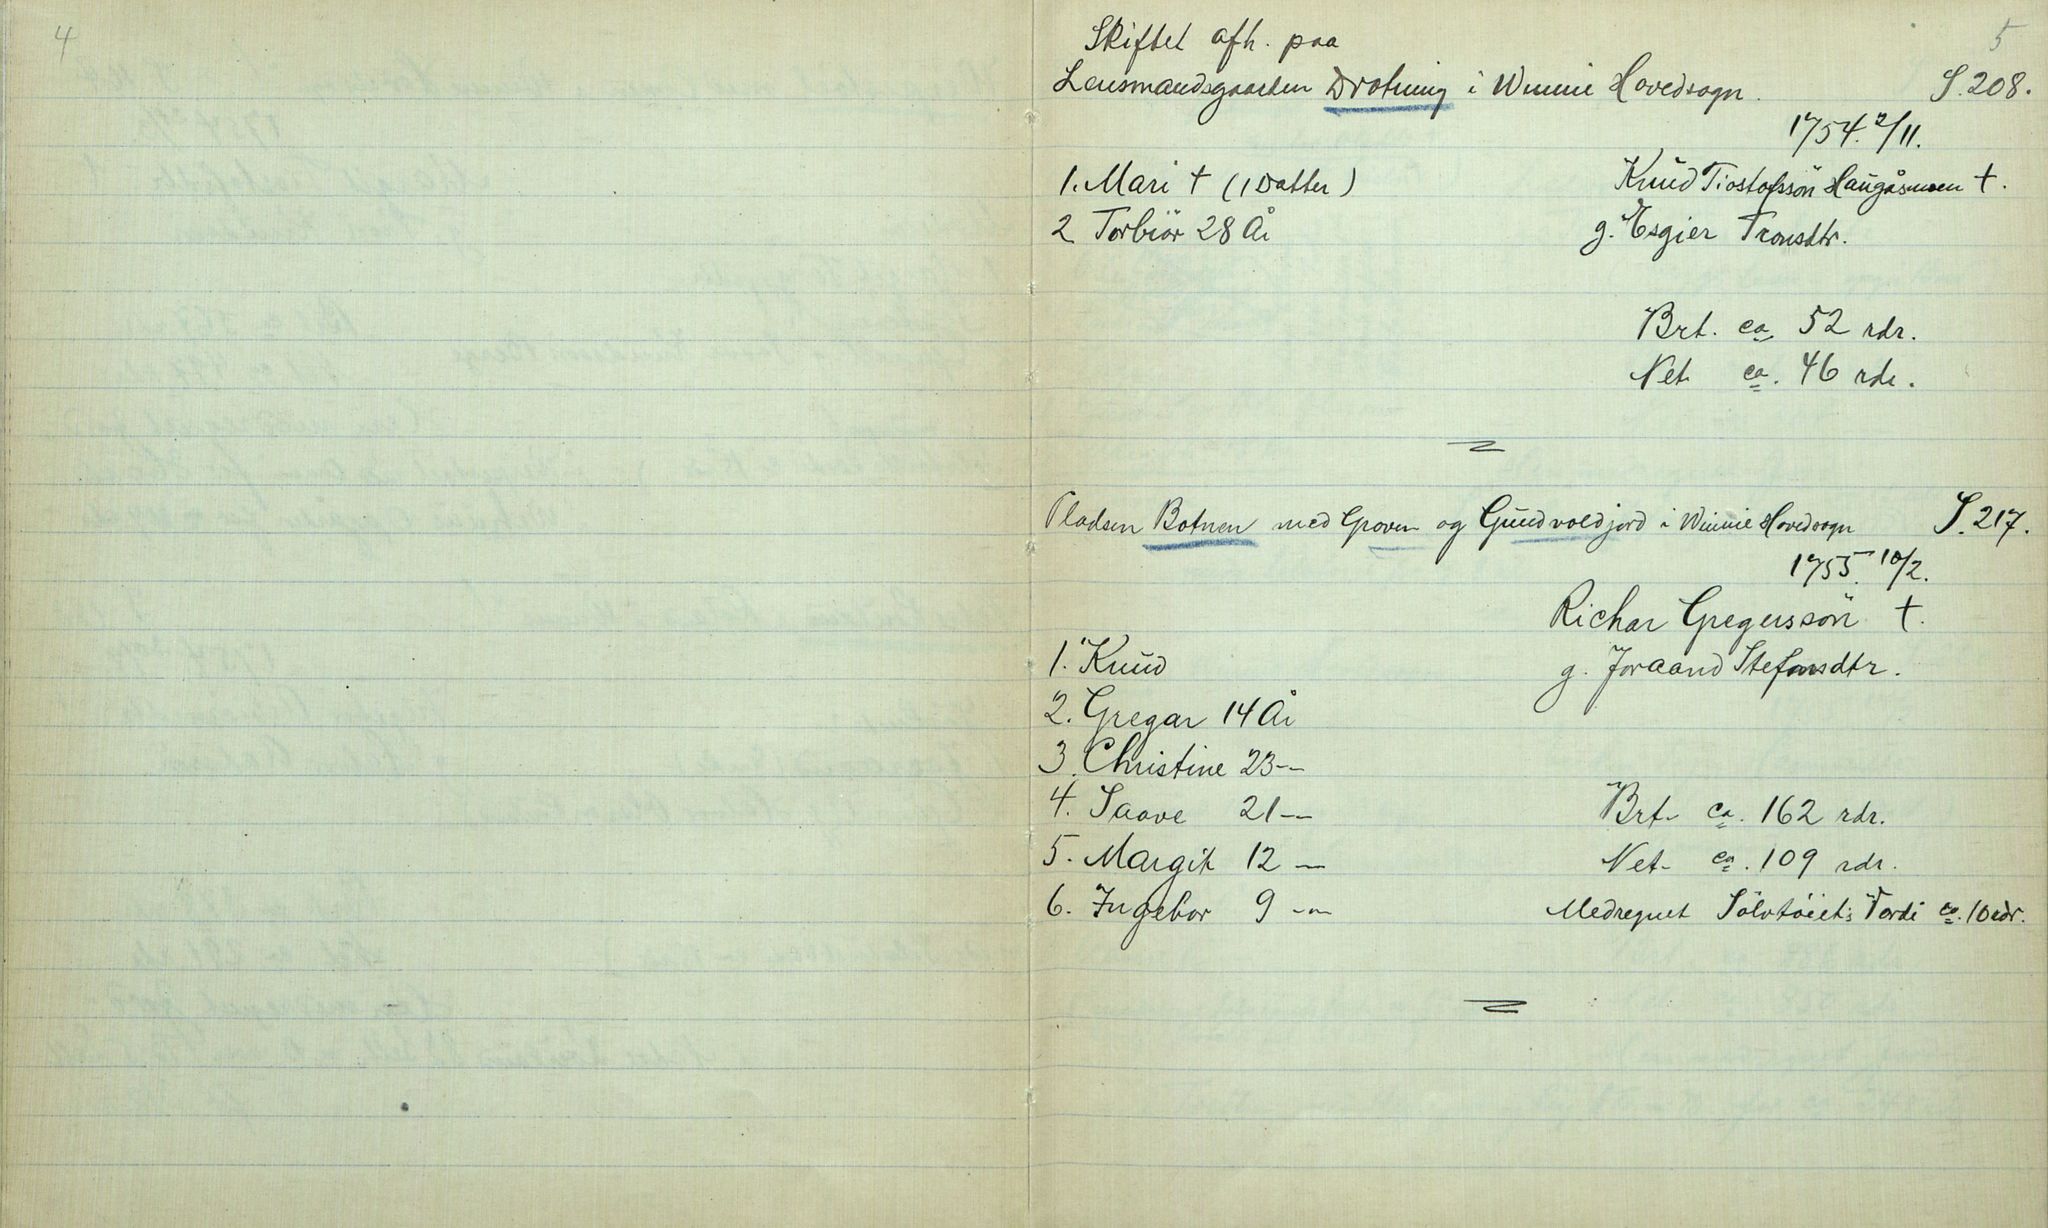 4
5
Skiftet afh. paa
Lensmandsgaarden Drotning i Winnie Hovedsogn. S. 208.
1754. 2/11.
1. Mari † (1 Datter) Knud Tiostolfssön Haugåsmoen †.
2 Torbiör 28 År g. Esgier Tronsdtr.
Brt. ca 52 rdr.
Net ca. 46 rdr.
Pladsen Botnen med Groven og Gundvoldjord i Winnie Hovedsogn S. 217.
1755. 10/2.
Richar Gregerssön †.
1. Knud g. Joraand Stefansdtr.
2. Gregar 14 År
3. Christine 23 —
4. Saave 21 — Brt. ca. 162 rdr.
5. Margit 12 — Net. ca. 109 rdr.
6. Ingebor 9 — Medregnet Sölvtöiets Verdi ca. 10 rdr.